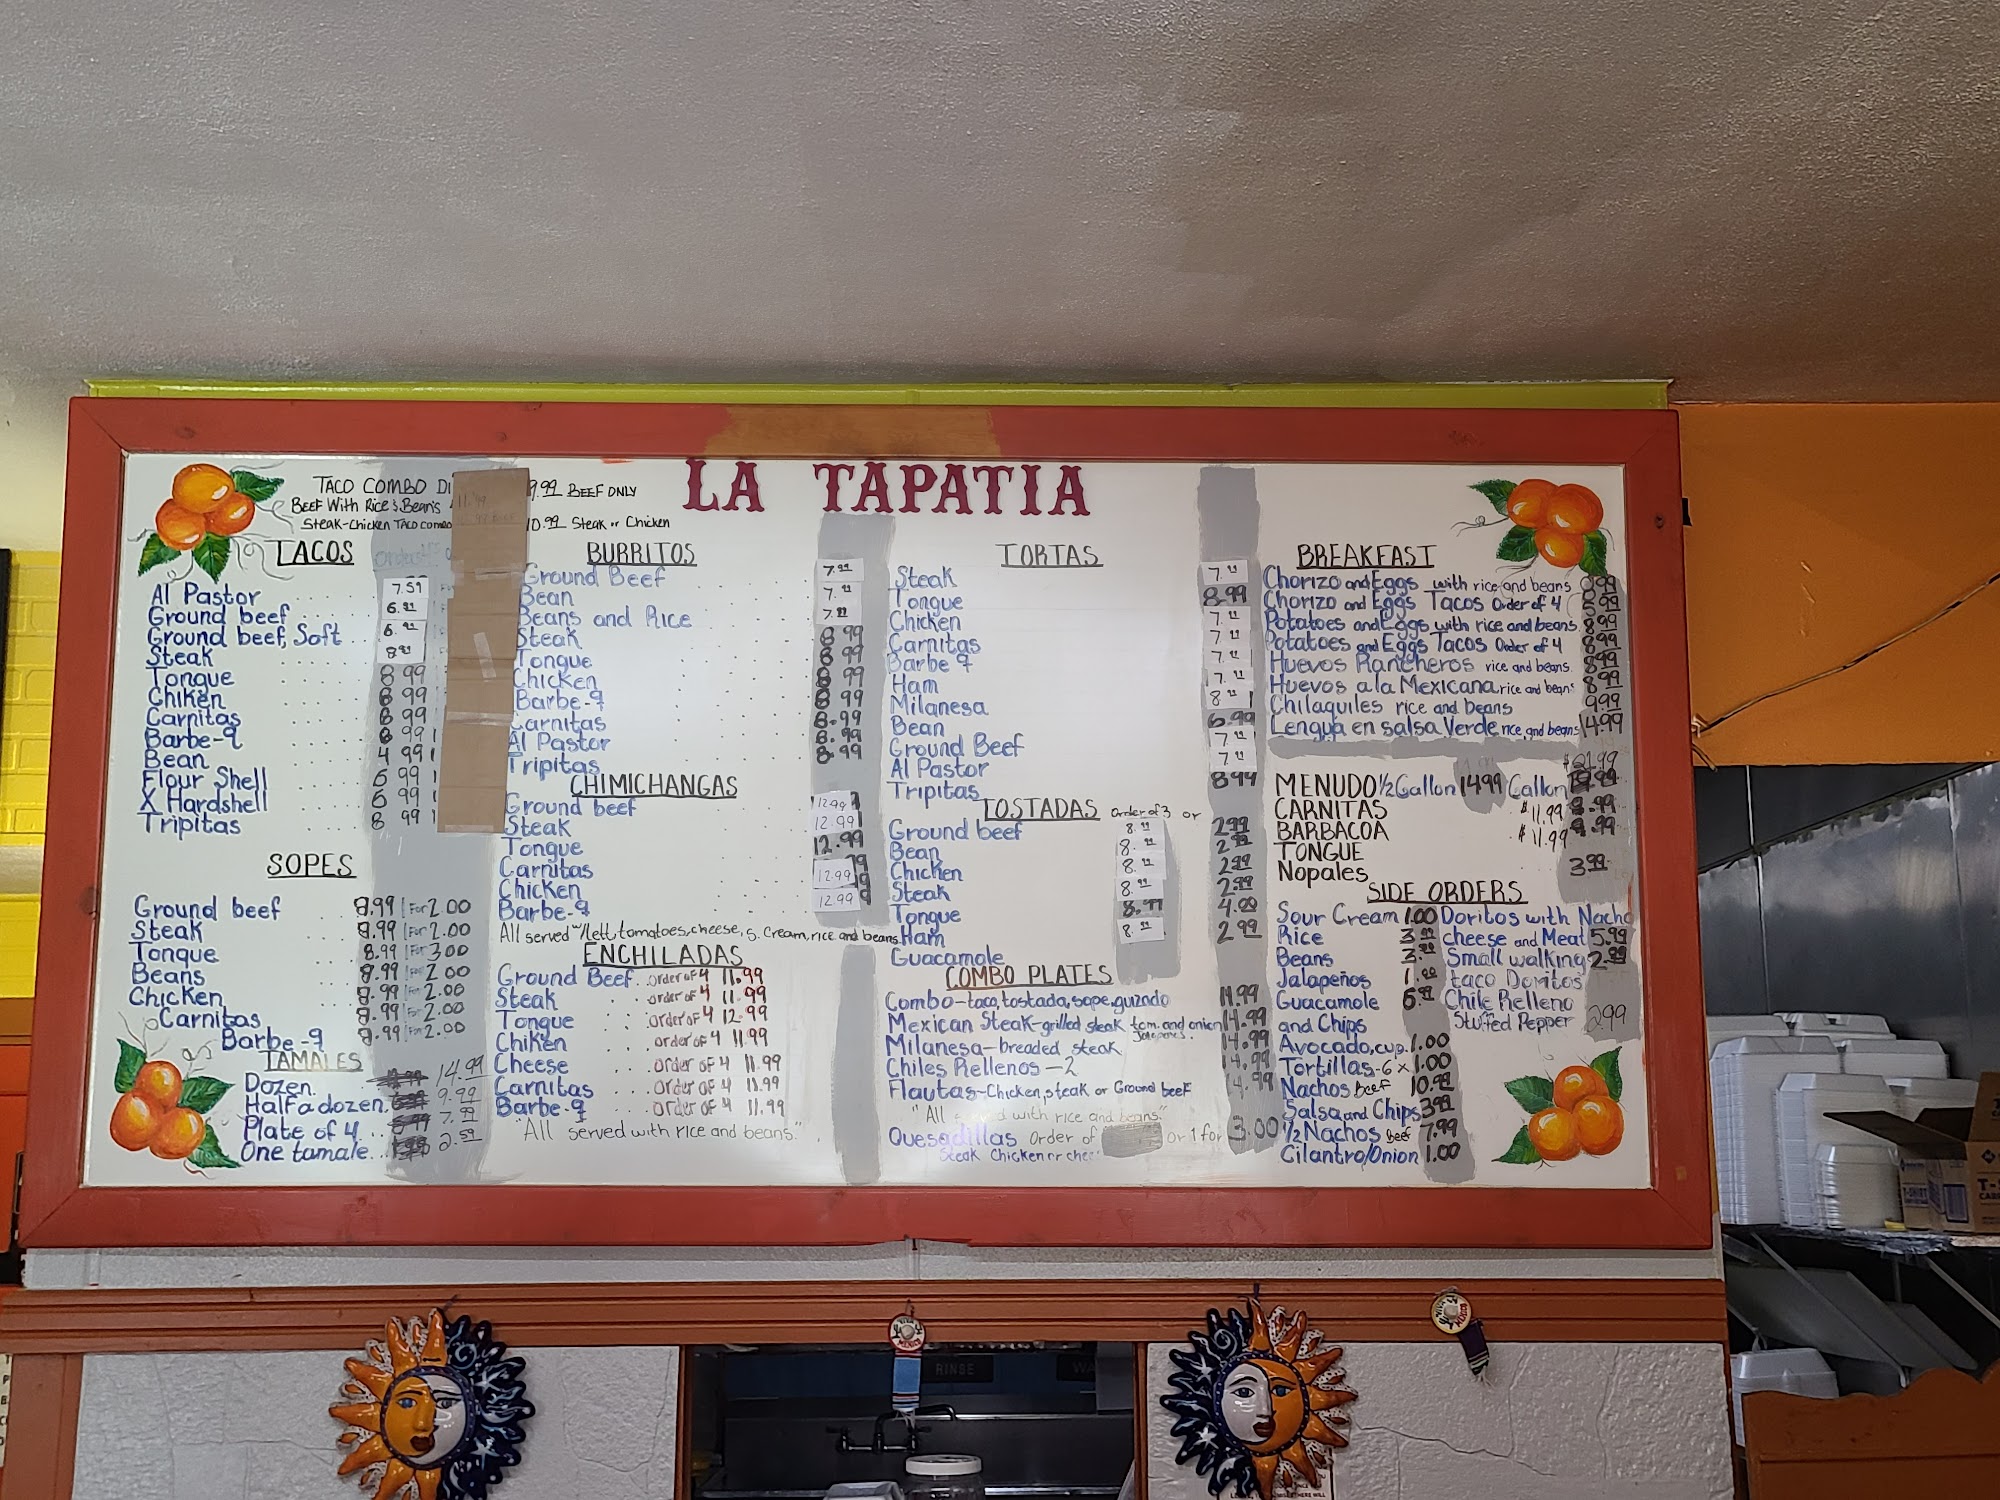 LA TAPATIA
TACO COMBO DI 9.99 BEEF ONLY
BEEF With Rice & Beans
Steak-Chicken TACO combo 10.99 Steak or Chicken
TACOS
Al Pastor 7.59
Ground beef 6.99
Ground beef, Soft 6.99
Steak 8.99
Tongue 8.99
Chiken 8.99
Carnitas 8.99
Barbe-q 8.99
Bean 4.99
Flour Shell 6.99
X Hardshell 6.99
Tripitas 8.99
SOPES
Ground beef 8.99 1 For 2.00
Steak 8.99 1 For 2.00
Tongue 8.99 1 For 3.00
Beans 8.99 1 For 2.00
Chicken 8.99 1 For 2.00
Carnitas 8.99 1 For 2.00
Barbe-q 8.99 1 For 2.00
TAMALES
Dozen 14.99
Half a dozen 9.99
Plate of 4 7.99
One tamale 2.59
BURRITOS
Ground Beef 7.99
Bean 7.99
Beans and Rice 7.99
Steak 8.99
Tongue 8.99
Chicken 8.99
Barbe-q 8.99
Carnitas 8.99
Al Pastor 8.99
Tripitas 8.99
CHIMICHANGAS
Ground beef 12.99
Steak 12.99
Tongue 12.99
Carnitas
Chicken 12.99
Barbe-q 12.99
All served w/lett, tomatoes, cheese, s. cream, rice and beans
ENCHILADAS
Ground Beef order of 4 11.99
Steak order of 4 11.99
Tongue order of 4 12.99
Chiken order of 4 11.99
Cheese order of 4 11.99
Carnitas order of 4 11.99
Barbe-q order of 4 11.99
"All served with rice and beans."
TORTAS
Steak 7.99
Tongue 8.99
Chicken 7.99
Carnitas 7.99
Barbe q 7.99
Ham 7.99
Milanesa 8.99
Bean 6.99
Ground Beef 7.99
Al Pastor 7.99
Tripitas 8.99
TOSTADAS Order of 3 or
Ground beef 8.99 2.99
Bean 8.99 2.99
Chicken 8.99 2.99
Steak 8.99 2.99
Tongue 8.99 4.00
Ham 8.99 2.99
Guacamole
COMBO PLATES
Combo-taco, tostada, sope, guizado 14.99
Mexican Steak-grilled steak tom. and onion 14.99
Jalapenos.
Milanesa-breaded steak 14.99
Chiles Rellenos-2 14.99
Flautas-Chicken, steak or Ground beef 14.99
"All served with rice and beans."
Quesadillas order of or 1 for 3.00
Steak Chicken or chee
BREAKFAST
Chorizo and Eggs with rice and beans 8.99
Chorizo and Eggs Tacos Order of 4 5.99
Potatoes and Eggs with rice and beans 8.99
Potatoes and Eggs Tacos Order of 4 8.99
Huevos Rancheros rice and beans 8.99
Huevos a la Mexicana rice and beans 8.99
Chilaquiles rice and beans 9.99
Lengua en salsa Verde rice and beans 14.99
$21.99
MENUDO 1/2 Gallon 14.99 Gallon
CARNITAS $11.99
BARBACOA $11.99
TONGUE
Nopales 3.99
SIDE ORDERS
Sour Cream 1.00
Rice 3.99
Beans 3.99
Jalapeños 1.00
Guacamole 6.99
and Chips
Avocado, cup. 1.00
Tortillas-6 x 1.00
Nachos Beef 10.99
Salsa and Chips 3.99
1/2 Nachos Beef 7.99
Cilantro/Onion 1.00
Doritos with Nacho
cheese and Meat 5.99
Small walking 2.99
taco Doritos
Chile Relleno
Stuffed Pepper 2.99
RINSE
WA